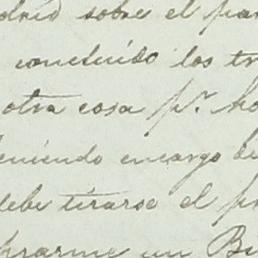 drid sobre el par
concluido los tr
otra cosa pr. ho
teniendo encargo de
debe tirarse el p
prarme un Bu